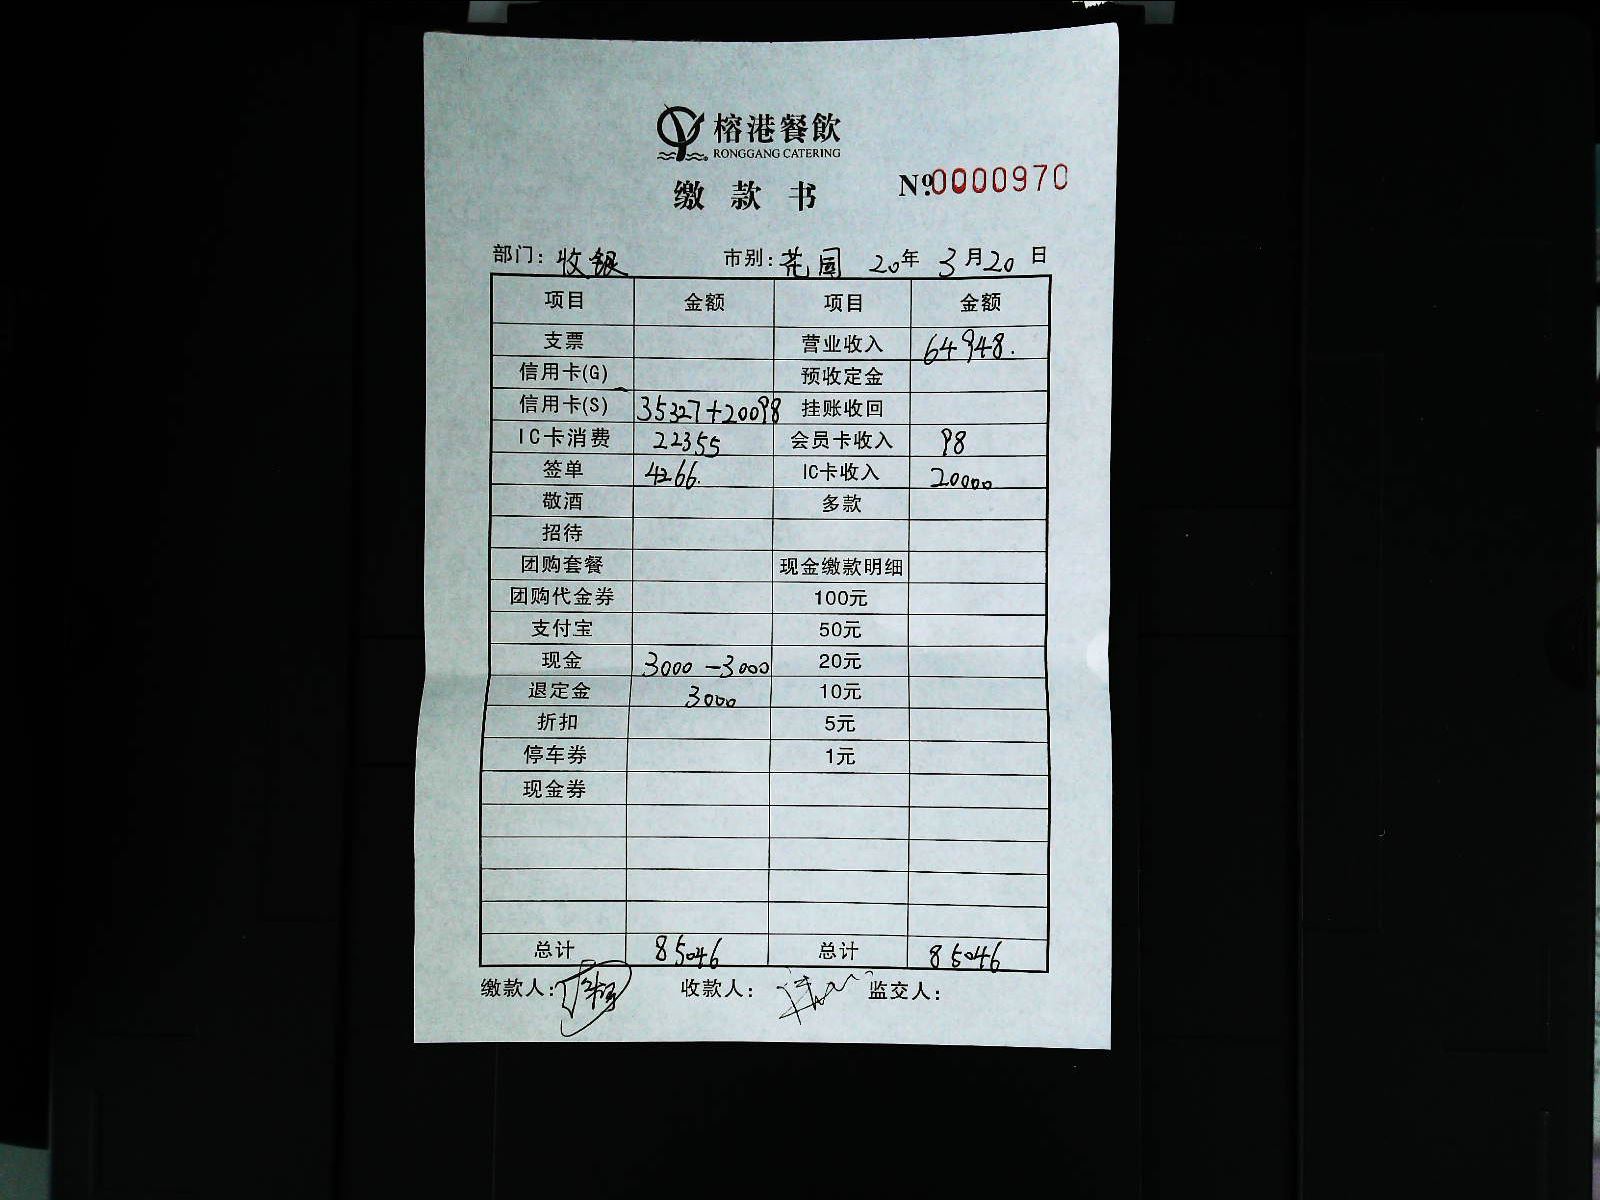 榕港餐飲
RONGGANG CATERING
缴款书 №0000970
部门：收银 市别：花园 20年 3月20日
项目 金额 项目 金额
支票 营业收入 64948.
信用卡(G) 预收定金
信用卡(S) 35327+20098 挂账收回
IC卡消费 22355 会员卡收入 98
签单 4266. IC卡收入 20000
敬酒 多款
招待
团购套餐 现金缴款明细
团购代金券 100元
支付宝 50元
现金 3000 -3000 20元
退定金 3000 10元
折扣 5元
停车券 1元
现金券
总计 85046 总计 85046
缴款人： 收款人： 监交人：